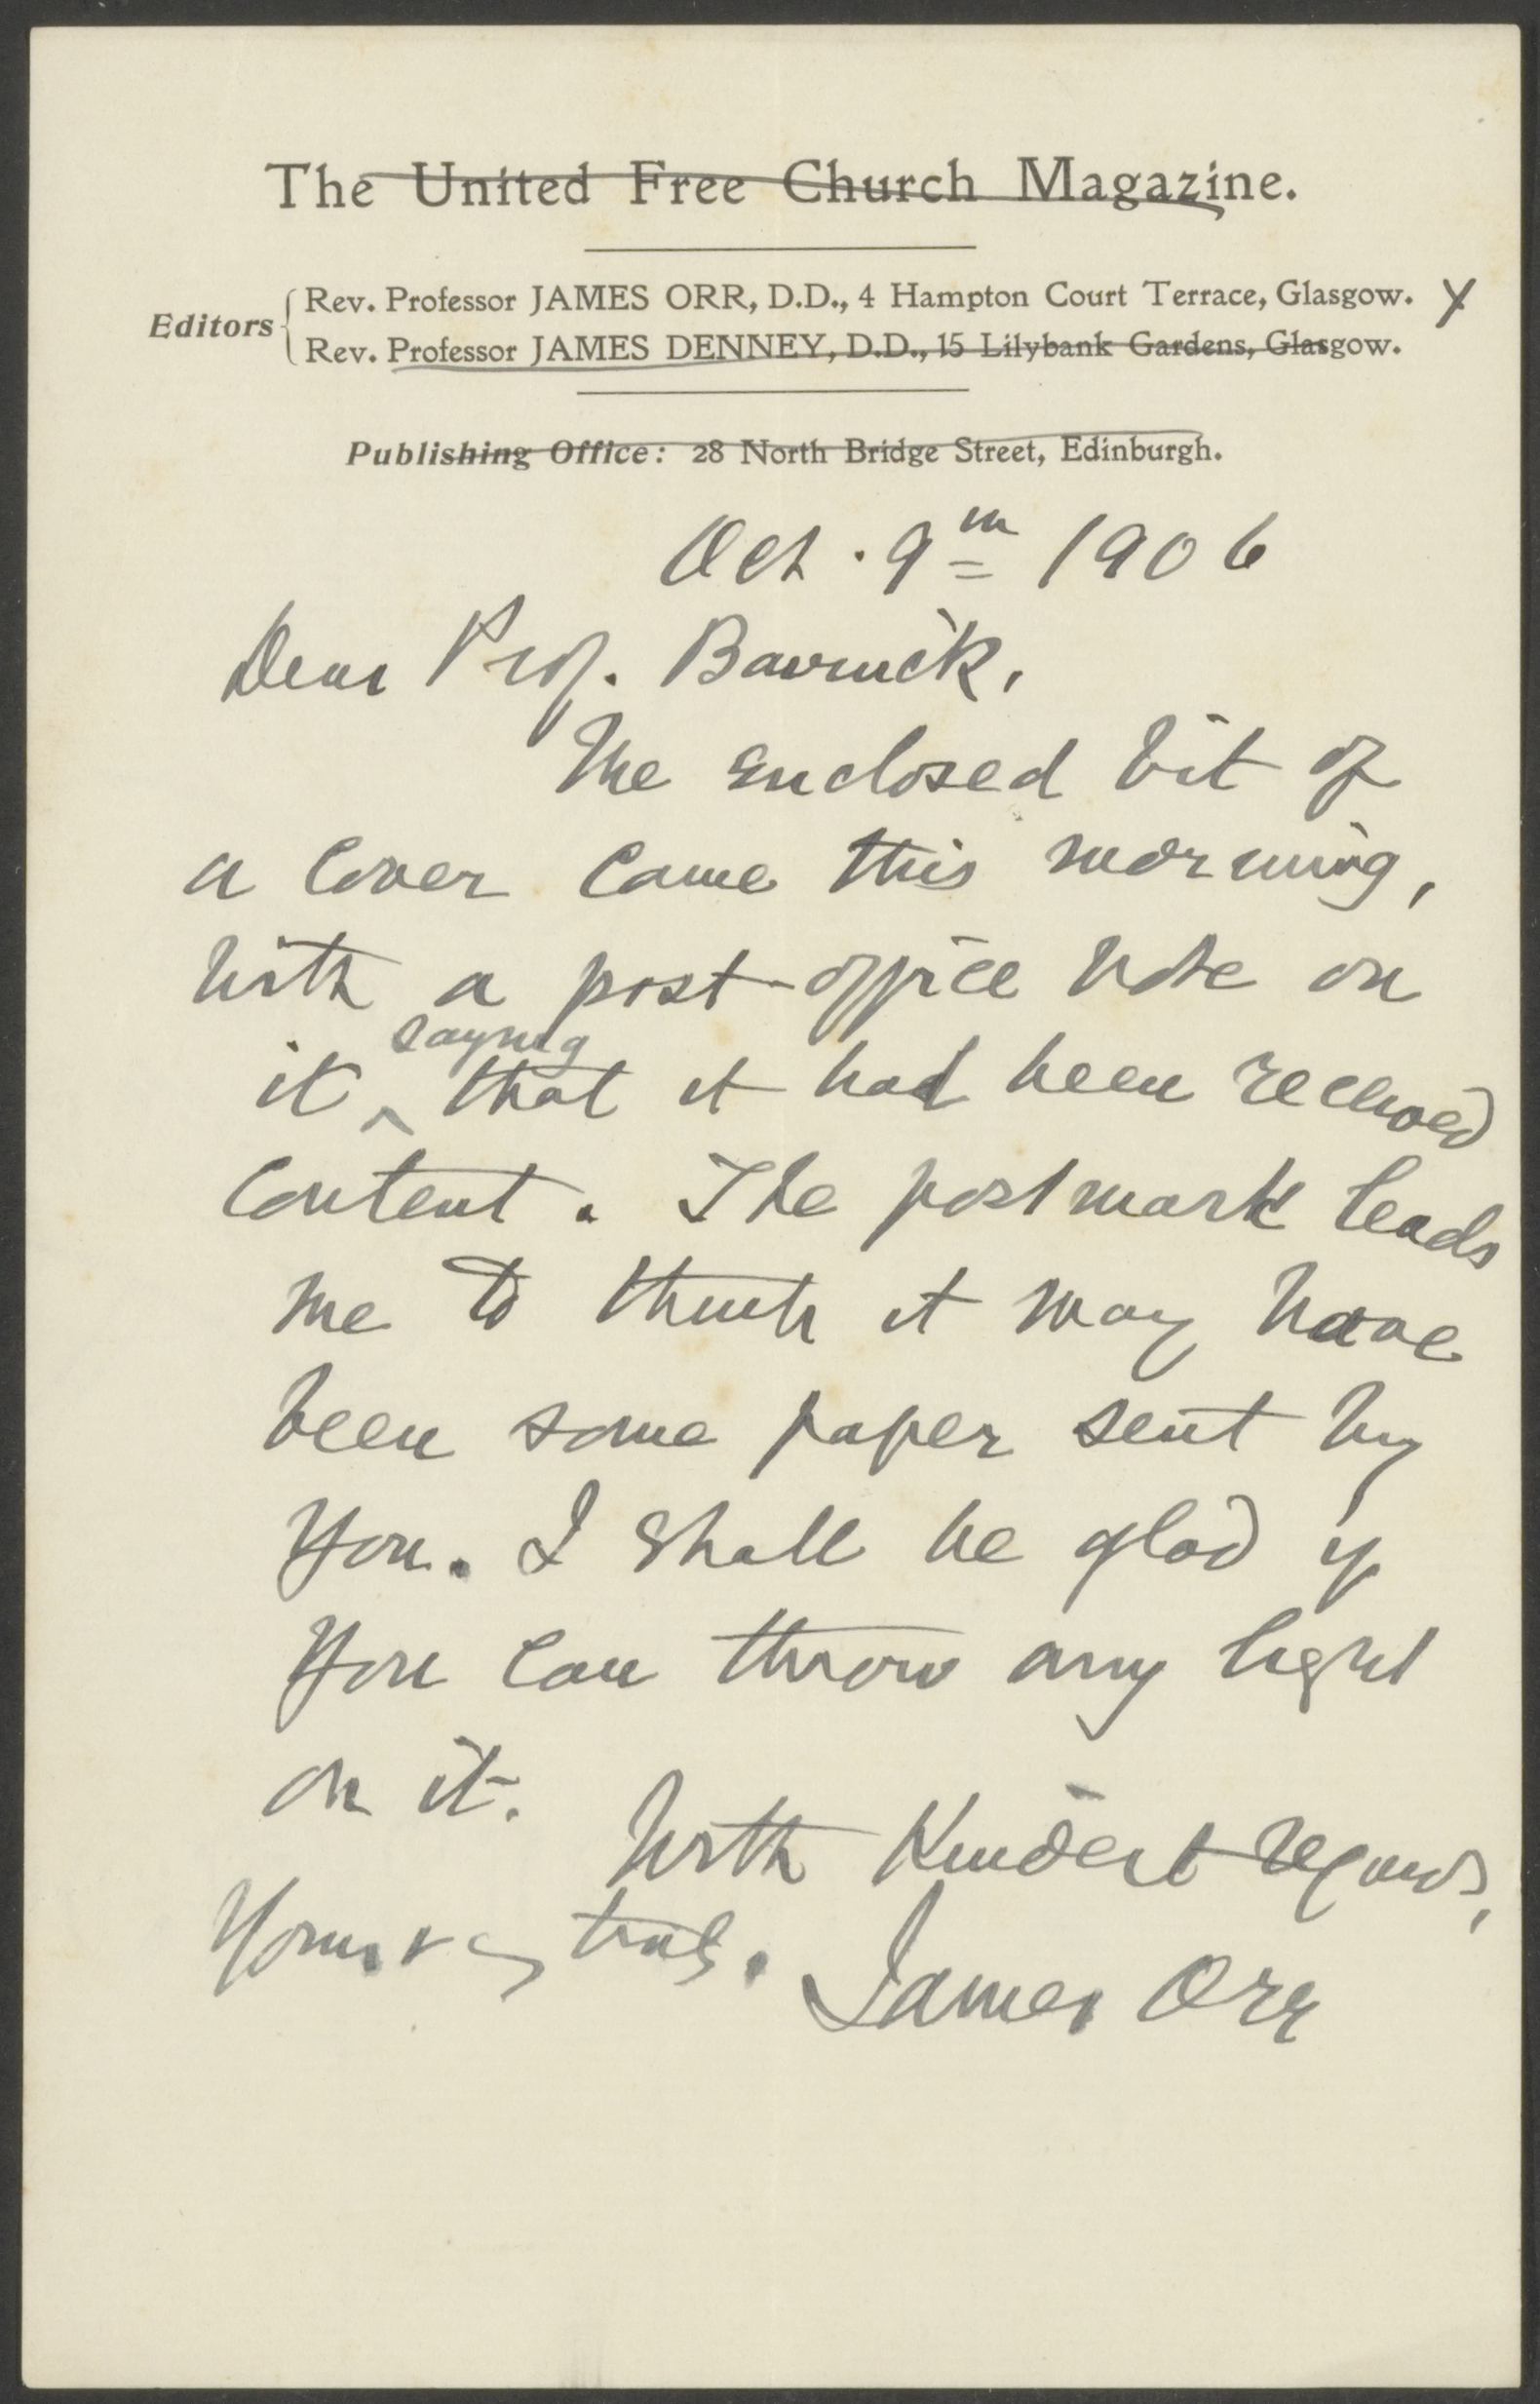 The United Free Church Magazine.
Editors
Rev. Professor JAMES ORR, D.D., 4 Hampton Court Terrace, Glasgow. X
Rev. Professor JAMES DENNEY, D.D., 15 Lilybank Gardens, Glasgow.
Publishing Office: 28 North Bridge Street, Edinburgh.
Oct. 9th 1906
Dear Prof. Bavinck,
The enclosed bit of
a cover came this morning,
with a post-office note on
it saying that it had been received
content. The postmark leads
me to think it may have
been some paper sent by
you. I shall be glad if
you can throw any light
on it.
With kindest regards,
Yours very truly.
James Orr